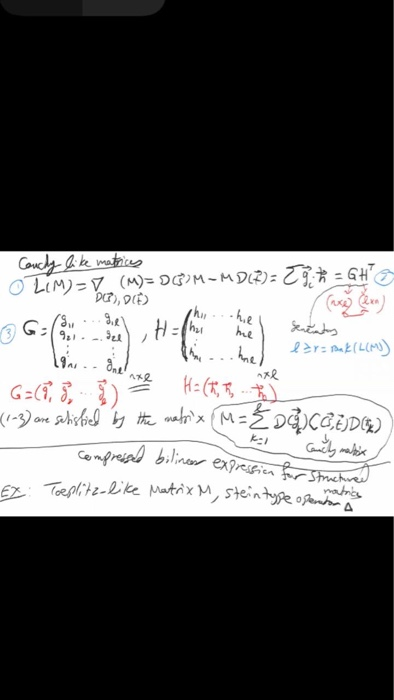 Cauchy like matrices
① L(M) = ∇_{D(s⃗), D(t⃗)} (M) = D(s⃗) M − M D(t⃗) = Σ g⃗ᵢ h⃗ = G Hᵀ ②
(n×l) (l×n)
generators
l ≥ r = rank(L(M))
③ G = (g₁₁ ... g₁l
g₂₁ ... g₂l
⋮ ⋮
gn₁ ... gnl) n×l , H = (h₁₁ ... h₁l
h₂₁ h₂l
⋮
hn₁ ... hnl) n×l
G = (g⃗₁ g⃗₂ ... g⃗l) H = (h⃗₁ h⃗₂ ... h⃗n)
(1-3) are satisfied by the matrix M = Σ_{k=1}^{l} D(g⃗k) C(s⃗,t⃗) D(h⃗k)
Cauchy matrix
compressed bilinear expression for structured
matrices
EX: Toeplitz-like Matrix M, stein type operator Δ